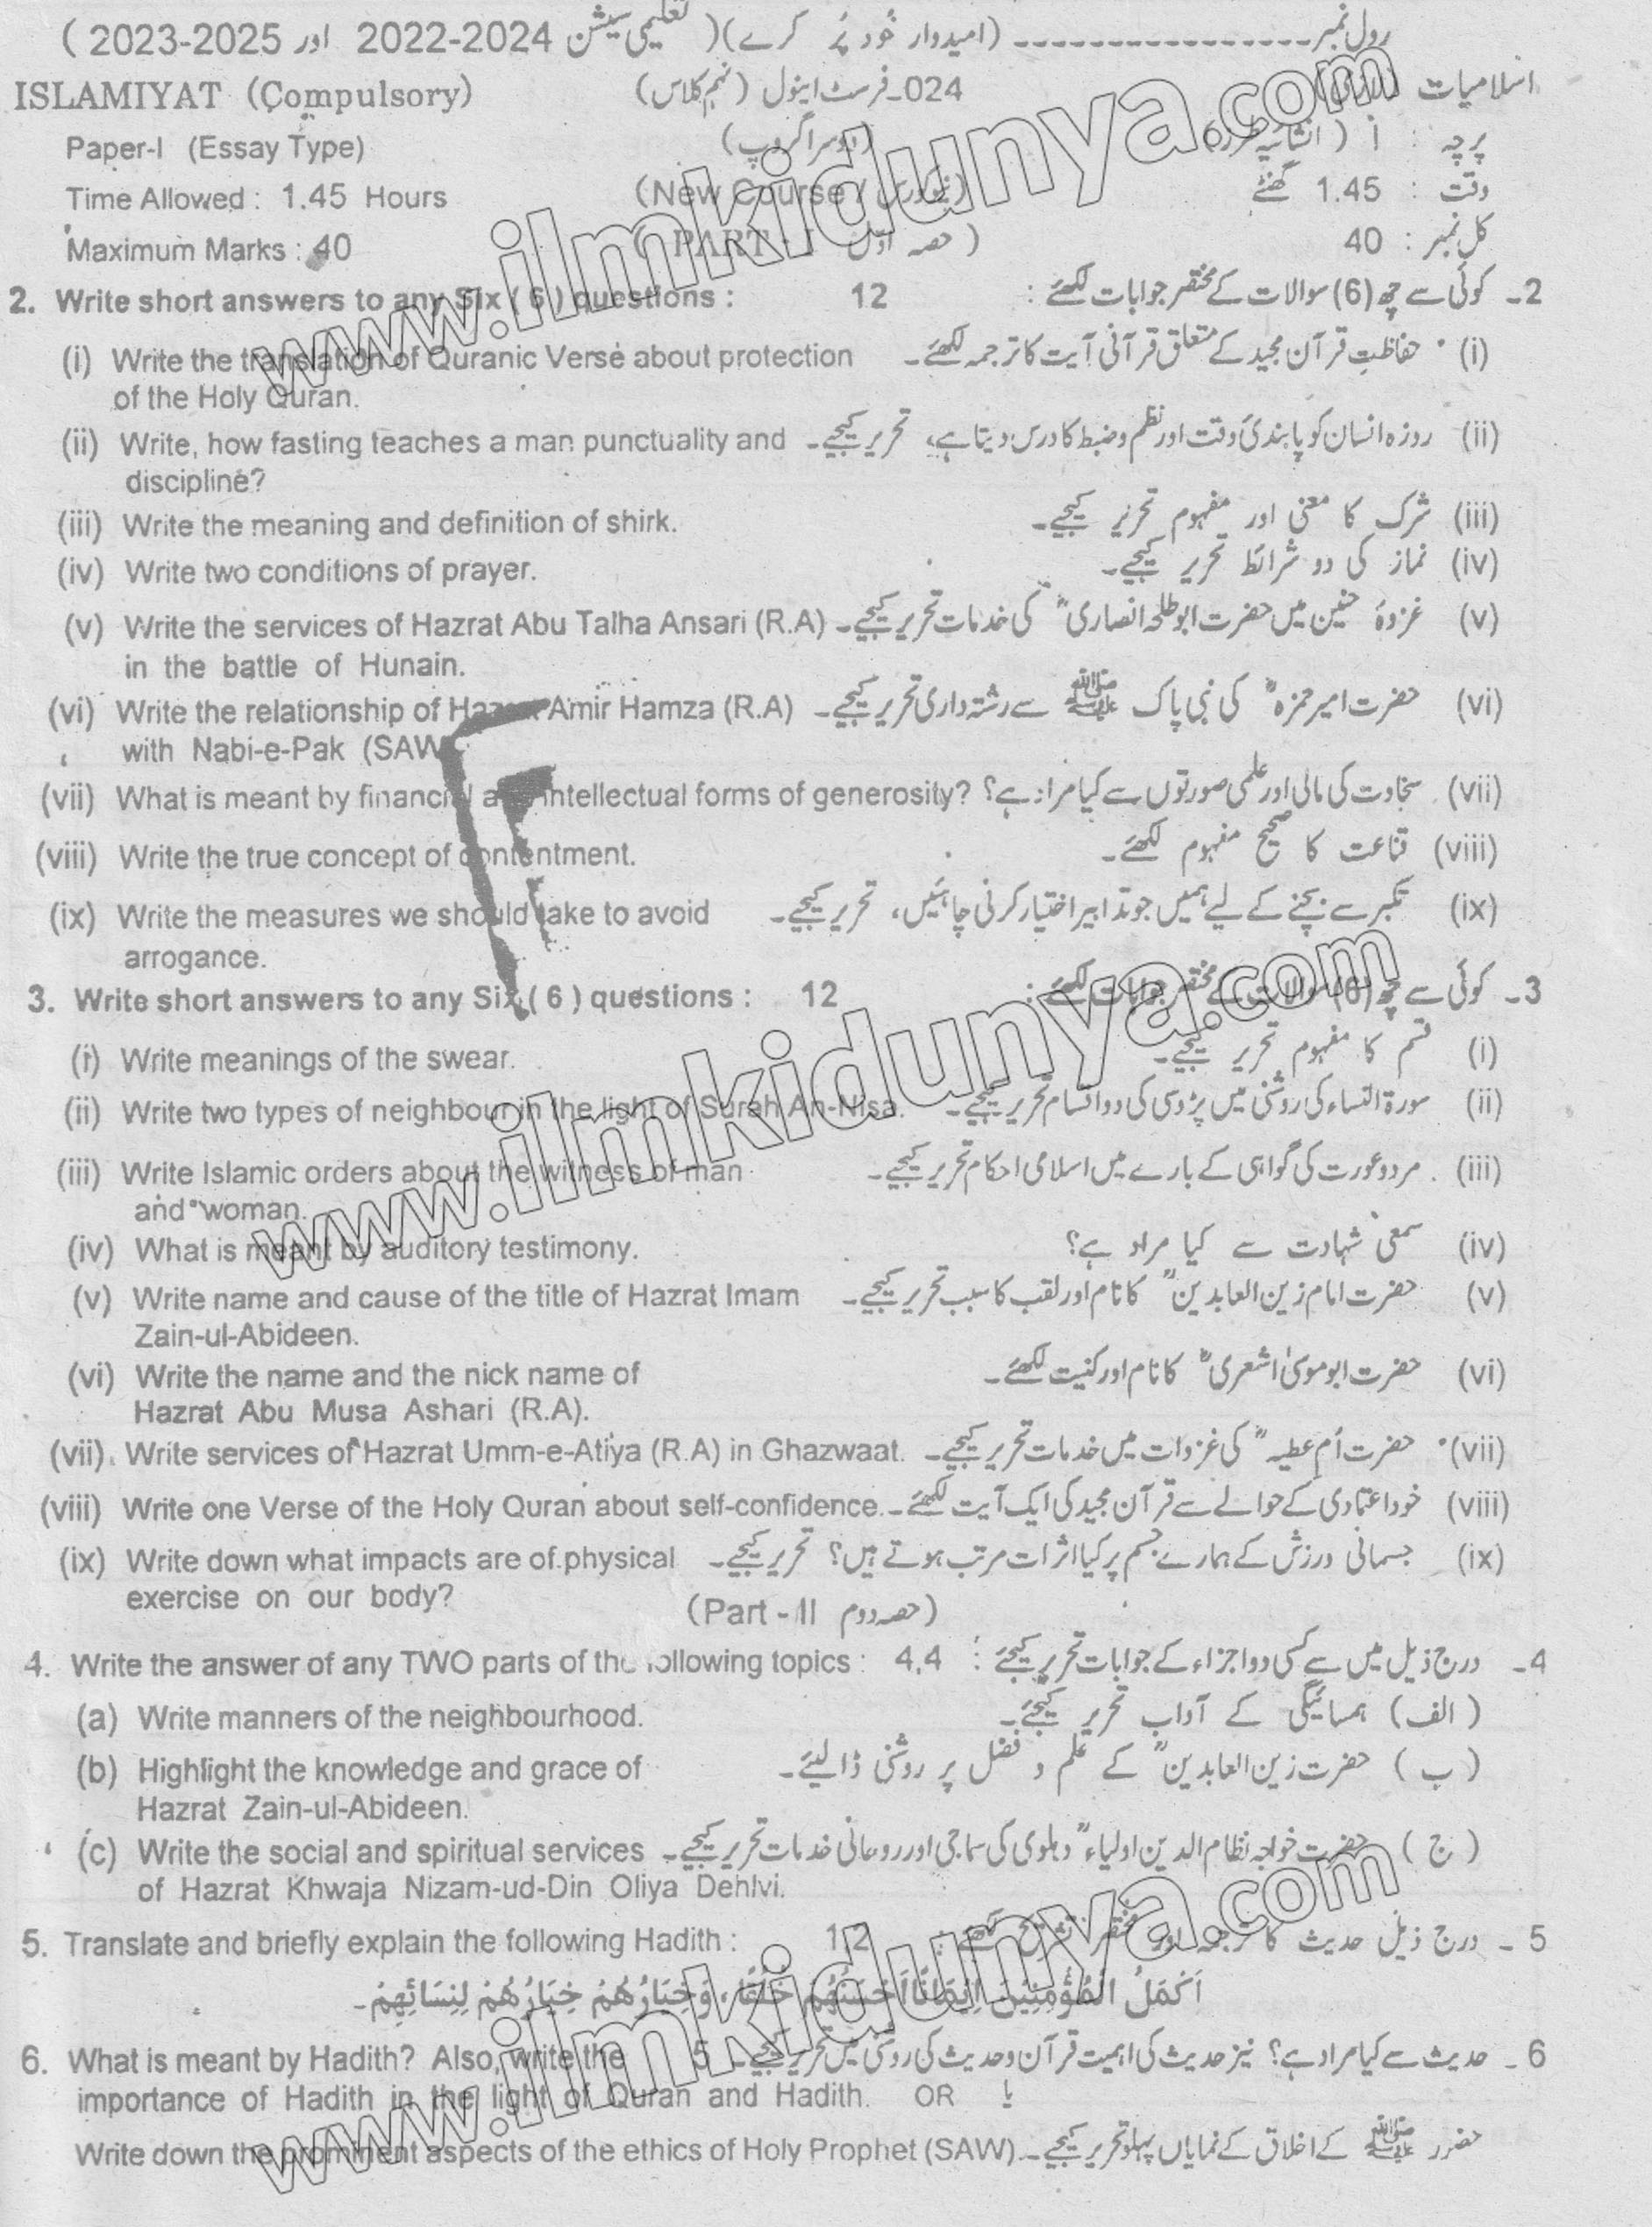 رول نمبر ----------------- (امیدوار خود پُر کرے) ( تعلیمی سیشن 2024-2022 اور 2025-2023 )
ISLAMIYAT (Compulsory) 024-فرسٹ اینول (نہم کلاس) اسلامیات
Paper-I (Essay Type) (دوسرا گروپ) پرچہ : I ( انشائیہ
Time Allowed : 1.45 Hours (New Course / نیو کورس) وقت : 1.45 گھنٹے
Maximum Marks : 40 ( PART - I حصہ اوّل ) کل نمبر : 40
2. Write short answers to any Six ( 6 ) questions : 12 2۔ کوئی سے چھ (6) سوالات کے مختصر جوابات لکھئے :
(i) Write the translation of Quranic Verse about protection of the Holy Quran. (i) حفاظتِ قرآن مجید کے متعلق قرآنی آیت کا ترجمہ لکھئے۔
(ii) Write, how fasting teaches a man punctuality and discipline? (ii) روزہ انسان کو پابندیٔ وقت اور نظم و ضبط کا درس دیتا ہے، تحریر کیجیے۔
(iii) Write the meaning and definition of shirk. (iii) شرک کا معنی اور مفہوم تحریر کیجیے۔
(iv) Write two conditions of prayer. (iv) نماز کی دو شرائط تحریر کیجیے۔
(v) Write the services of Hazrat Abu Talha Ansari (R.A) in the battle of Hunain. (v) غزوۂ حنین میں حضرت ابو طلحہ انصاریؓ کی خدمات تحریر کیجیے۔
(vi) Write the relationship of Hazrat Amir Hamza (R.A) with Nabi-e-Pak (SAW (vi) حضرت امیر حمزہؓ کی نبی پاک ﷺ سے رشتہ داری تحریر کیجیے۔
(vii) What is meant by financial and intellectual forms of generosity? (vii) سخاوت کی مالی اور علمی صورتوں سے کیا مراد ہے؟
(viii) Write the true concept of contentment. (viii) قناعت کا صحیح مفہوم لکھئے۔
(ix) Write the measures we should take to avoid arrogance. (ix) تکبر سے بچنے کے لیے ہمیں جو تدابیر اختیار کرنی چاہئیں، تحریر کیجیے۔
3. Write short answers to any Six ( 6 ) questions : 12 3۔ کوئی سے چھ (6) سوالات کے مختصر جوابات لکھئے :
(i) Write meanings of the swear. (i) قسم کا مفہوم تحریر کیجیے۔
(ii) Write two types of neighbour in the light of Surah An-Nisa. (ii) سورۃ النساء کی روشنی میں پڑوسی کی دو اقسام تحریر کیجیے۔
(iii) Write Islamic orders about the witness of man and woman. (iii) مرد و عورت کی گواہی کے بارے میں اسلامی احکام تحریر کیجیے۔
(iv) What is meant by auditory testimony. (iv) سمعی شہادت سے کیا مراد ہے؟
(v) Write name and cause of the title of Hazrat Imam Zain-ul-Abideen. (v) حضرت امام زین العابدینؒ کا نام اور لقب کا سبب تحریر کیجیے۔
(vi) Write the name and the nick name of Hazrat Abu Musa Ashari (R.A). (vi) حضرت ابو موسیٰ اشعریؓ کا نام اور کنیت لکھئے۔
(vii) Write services of Hazrat Umm-e-Atiya (R.A) in Ghazwaat. (vii) حضرت اُم عطیہؓ کی غزوات میں خدمات تحریر کیجیے۔
(viii) Write one Verse of the Holy Quran about self-confidence. (viii) خود اعتمادی کے حوالے سے قرآن مجید کی ایک آیت لکھئے۔
(ix) Write down what impacts are of physical exercise on our body? (ix) جسمانی ورزش کے ہمارے جسم پر کیا اثرات مرتب ہوتے ہیں؟ تحریر کیجیے۔
(Part - II حصہ دوم)
4. Write the answer of any TWO parts of the following topics : 4,4 4۔ درج ذیل میں سے کسی دو اجزاء کے جوابات تحریر کیجیئے :
(a) Write manners of the neighbourhood. (الف) ہمسائیگی کے آداب تحریر کیجیئے۔
(b) Highlight the knowledge and grace of Hazrat Zain-ul-Abideen. (ب) حضرت زین العابدینؒ کے علم و فضل پر روشنی ڈالیئے۔
(c) Write the social and spiritual services of Hazrat Khwaja Nizam-ud-Din Oliya Dehlvi. (ج) حضرت خواجہ نظام الدین اولیاءؒ دہلوی کی سماجی اور روحانی خدمات تحریر کیجیے۔
5. Translate and briefly explain the following Hadith : 1,2 5۔ درج ذیل حدیث کا ترجمہ اور مختصر تشریح لکھئے :
اَكْمَلُ الْمُؤْمِنِيْنَ اِيْمَانًا اَحْسَنُهُمْ خُلُقًا، وَخِيَارُهُمْ خِيَارُهُمْ لِنِسَائِهِمْ۔
6. What is meant by Hadith? Also, write the importance of Hadith in the light of Quran and Hadith. 5 6۔ حدیث سے کیا مراد ہے؟ نیز حدیث کی اہمیت قرآن و حدیث کی روشنی میں تحریر کیجیے۔
OR یا
Write down the prominent aspects of the ethics of Holy Prophet (SAW). حضور ﷺ کے اخلاق کے نمایاں پہلو تحریر کیجیے۔
www.ilmkidunya.com
www.ilmkidunya.com
www.ilmkidunya.com